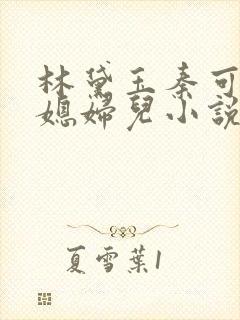 林黛玉秦可
媳婦兒小說
夏雪葉1